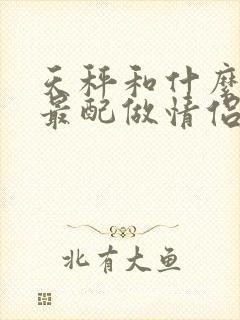 天秤和什麼
最配做情侣
北有大鱼